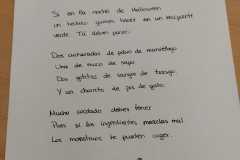 Si en la noche de Halloween
un hechizo quieres hacer en un recipiente
verde. Tú debes poner:
Dos cucharadas de polvo de murciélago
Una de moco de sapo
Dos gotitas de sangre de tortuga
Y un chorrito de pis de gato.
Mucho cuidado debes tener
Pues si los ingredientes mezclas mal
Los monstruos te pueden coger.